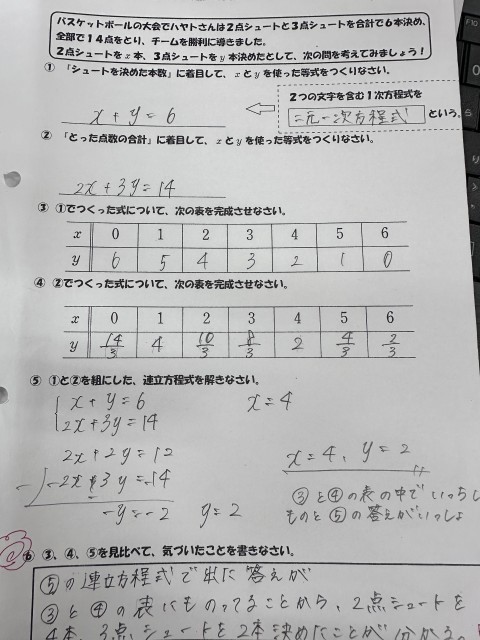 バスケットボールの大会でハヤトさんは2点シュートと3点シュートを合計で6本決め、
全部で14点をとり、チームを勝利に導きました。
2点シュートをx本、3点シュートをy本決めたとして、次の問を考えてみましょう!
① 「シュートを決めた本数」に着目して、xとyを使った等式をつくりなさい。
x + y = 6
2つの文字を含む1次方程式を
二元一次方程式 という。
② 「とった点数の合計」に着目して、xとyを使った等式をつくりなさい。
2x + 3y = 14
③ ①でつくった式について、次の表を完成させなさい。
x 0 1 2 3 4 5 6
y 6 5 4 3 2 1 0
④ ②でつくった式について、次の表を完成させなさい。
x 0 1 2 3 4 5 6
y 14/3 4 10/3 8/3 2 4/3 2/3
⑤ ①と②を組にした、連立方程式を解きなさい。
x + y = 6
2x + 3y = 14
x = 4
2x + 2y = 12
-) 2x + 3y = 14
-y = -2 y = 2
x = 4, y = 2
③と④の表の中でいっち
ものと⑤の答えがいっしょ
⑥ ③、④、⑤を見比べて、気づいたことを書きなさい。
⑤の連立方程式で出た答えが
③と④の表にものってることから、2点シュートを
4本、3点シュートを2本決めたことが分かる。